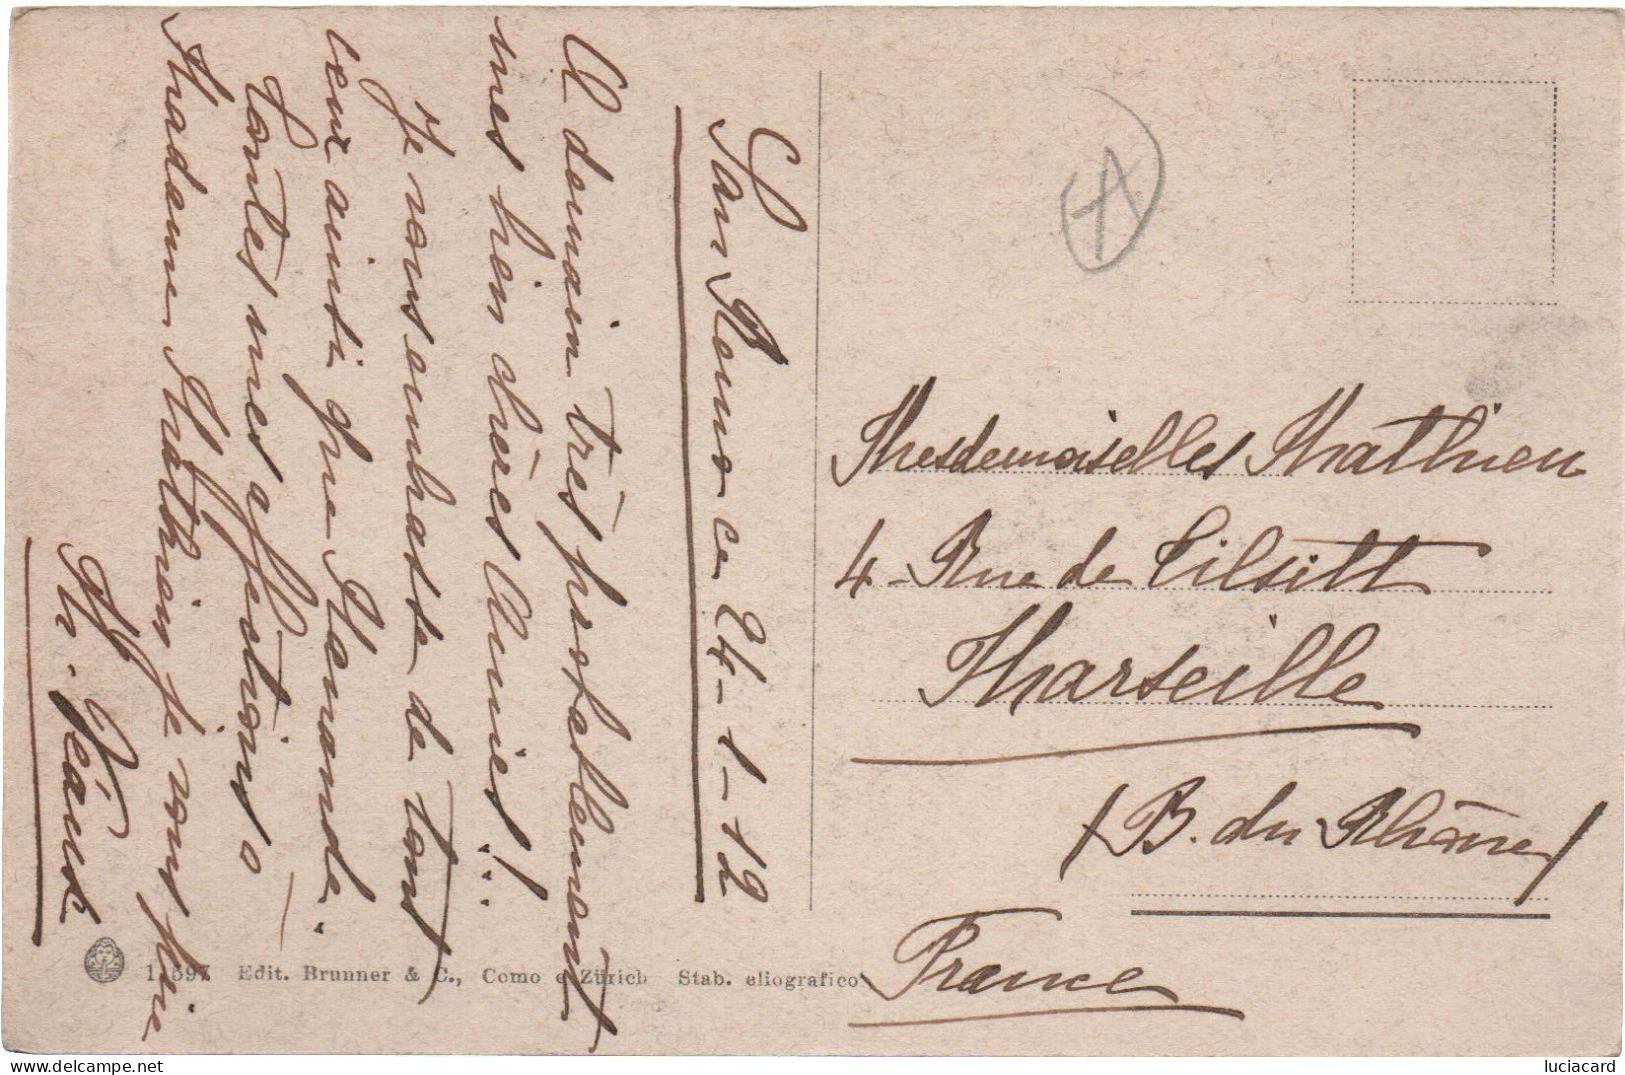 San Remo ce 24-1-12
A demain très probablement
mes bien chères Amies!..
Je vous embrasse de tout
cœur ainsi que Mamande.
Toutes mes affections
Madame Mathieu je vous prie
M.
Mesdemoiselles Mathieu
4 - Rue de Tilsitt
Marseille
(B. du Rhône)
France
A
Edit. Brunner & C., Como e Zürich Stab. eliografico
www.delcampe.net
luciacard